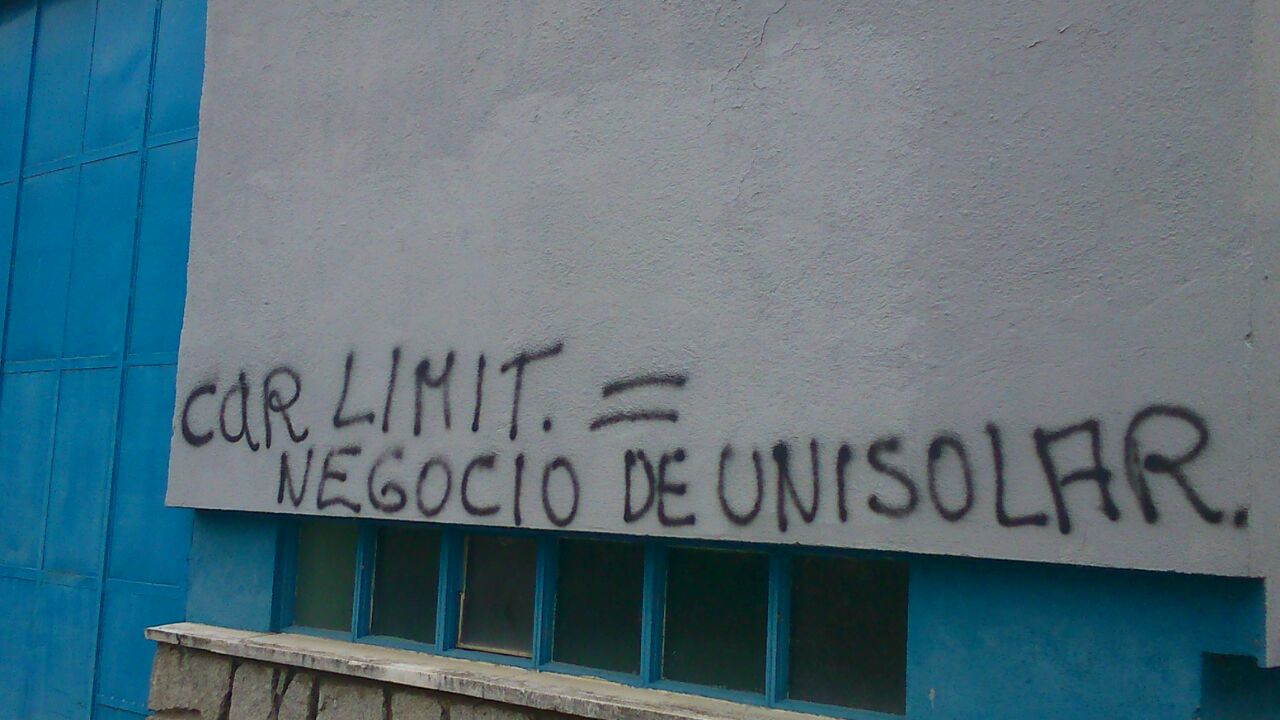 CaR LIMIT. =
NEGOCIO DE UNISOLAR.